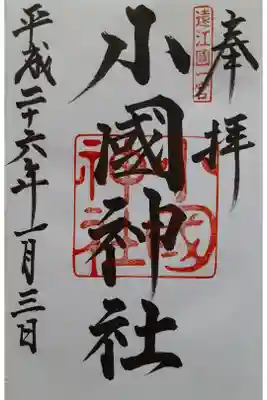 奉拝
遠江國一宮
小國神社
小國神社
平成二十六年一月三日